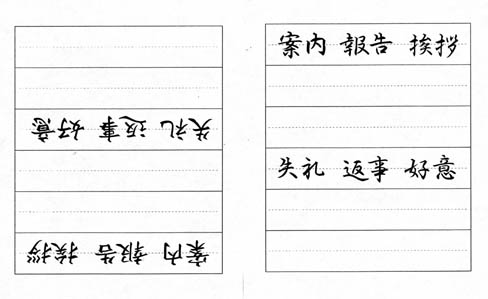 案内 報告 挨拶
失礼 返事 好意
案内 報告 挨拶
失礼 返事 好意